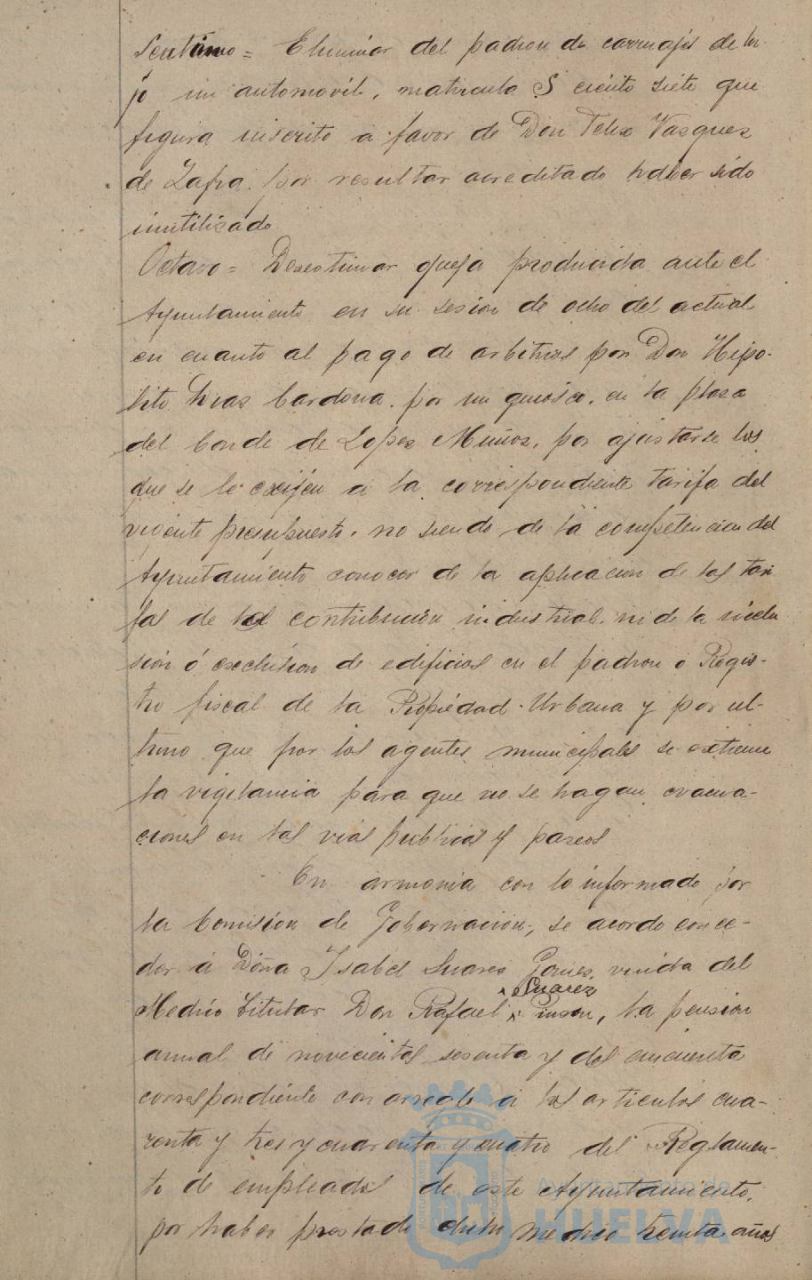 Septimo = Eliminar del padron de carruajes de lu-
jo un automovil, matricula S ciento siete que
figura inscrito a favor de Don Felix Vasquez
de Zafra, por resultar acreditado haber sido
inutilizado
Octavo = Desestimar queja producida ante el
Ayuntamiento en su sesion de ocho del actual
en cuanto al pago de arbitrios por Don Hipo-
lito Cardona, por un quiosco, en la plaza
del Conde de Lopez Muñoz, por ajustarse los
que se le exijen a la correspondiente tarifa del
vigente presupuesto, no siendo de la competencia del
Ayuntamiento conocer de la aplicacion de las tari
fas de la contribucion industrial ni de la inclu
sion ó exclusion de edificios en el padron o Regis-
tro fiscal de la Propiedad Urbana y por ul-
timo que por los agentes municipales se extreme
la vigilancia para que no se hagan evacua-
ciones en las vias publicas y paseos
En armonia con lo informado por
la Comision de Gobernacion, se acordo conce-
der á Doña Isabel Suarez viuda del
Suarez
Medico Titular Don Rafael Pinson, la pension
anual de novecientas sesenta y
correspondiente con arreglo a los articulos cua-
renta y tres y cuarenta y cuatro del Reglamen-
to de empleados de este Ayuntamiento,
por haber prestado dicho medico treinta años
Ayuntamiento de
HUELVA